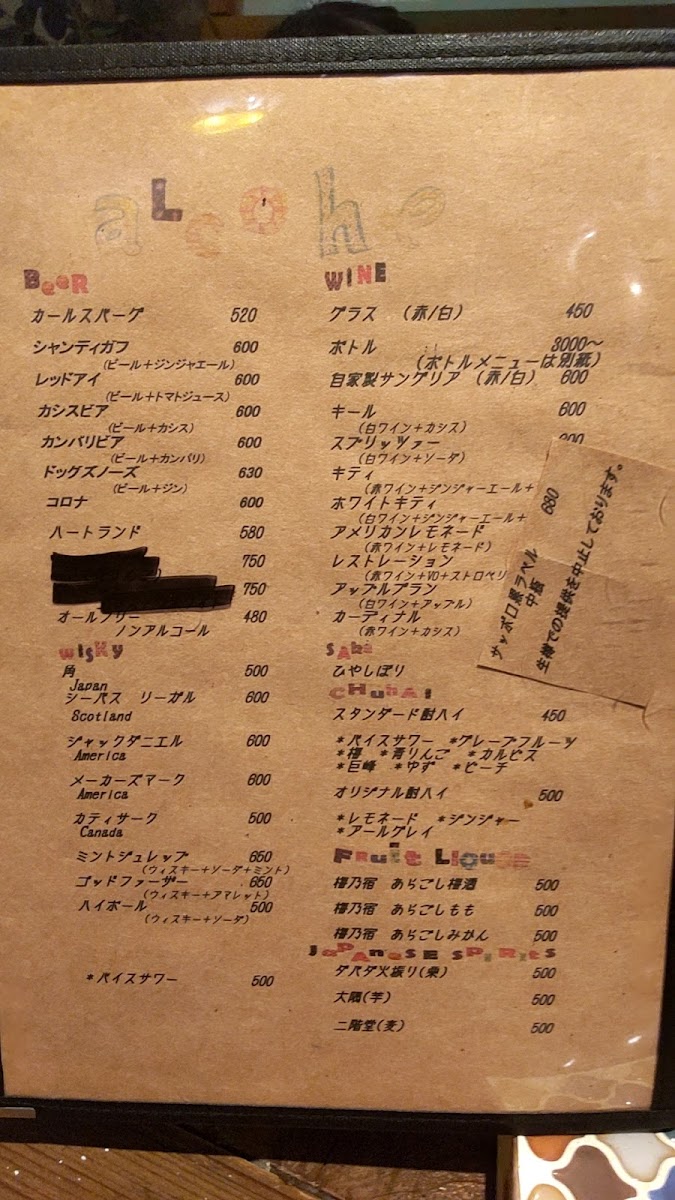 aLcoho
BeeR
カールスバーグ 520
シャンディガフ 600
(ビール+ジンジャエール)
レッドアイ 600
(ビール+トマトジュース)
カシスビア 600
(ビール+カシス)
カンパリビア 600
(ビール+カンパリ)
ドッグズノーズ 630
(ビール+ジン)
コロナ 600
ハートランド 580
750
750
オールフリー 480
ノンアルコール
WIsKy
角 500
Japan
シーバス リーガル 600
Scotland
ジャックダニエル 600
America
メーカーズマーク 600
America
カティサーク 500
Canada
ミントジュレップ 650
(ウィスキー+ソーダ+ミント)
ゴッドファーザー 650
(ウィスキー+アマレット)
ハイボール 500
(ウィスキー+ソーダ)
*バイスサワー 500
WINE
グラス (赤/白) 450
ボトル 3000〜
(ボトルメニューは別紙)
自家製サングリア (赤/白) 600
キール 600
(白ワイン+カシス)
スプリッツァー
(白ワイン+ソーダ)
キティ
(赤ワイン+ジンジャーエール+
ホワイトキティ
(白ワイン+ジンジャーエール+
アメリカンレモネード
(赤ワイン+レモネード)
レストレーション
(赤ワイン+VO+ストロベリ
アップルプラン
(白ワイン+アップル)
カーディナル
(赤ワイン+カシス)
サッポロ黒ラベル 680
中瓶
生樽での提供を中止しております。
SAke
ひやしぼり
CHuhAI
スタンダード酎ハイ 450
*バイスサワー *グレープフルーツ
*梅 *青りんご *カルピス
*巨峰 *ゆず *ピーチ
オリジナル酎ハイ 500
*レモネード *ジンジャー
*アールグレイ
Fruit Liquer
梅乃宿 あらごし梅酒 500
梅乃宿 あらごしもも 500
梅乃宿 あらごしみかん 500
JaPAnesE sPiRitS
ダバダ火振り(栗) 500
大隅(芋) 500
二階堂(麦) 500